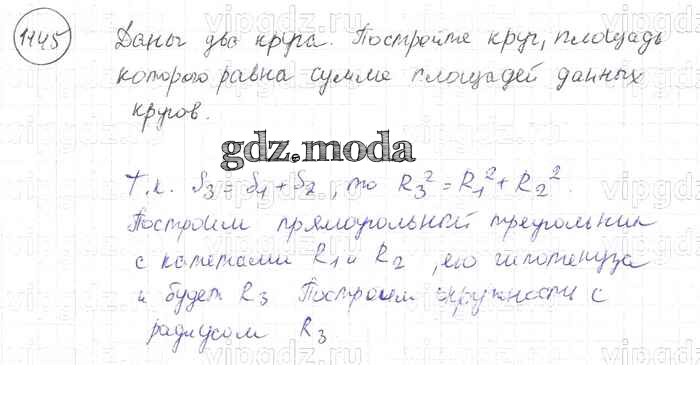 1145
Даны два круга. Постройте круг, площадь
которого равна сумме площадей данных
кругов.
gdz.moda
Т.к. S₃ = S₁ + S₂, то R₃² = R₁² + R₂².
Построим прямоугольный треугольник
с катетами R₁ и R₂, его гипотенуза
и будет R₃ Построим окружность с
радиусом R₃
vipgdz.com